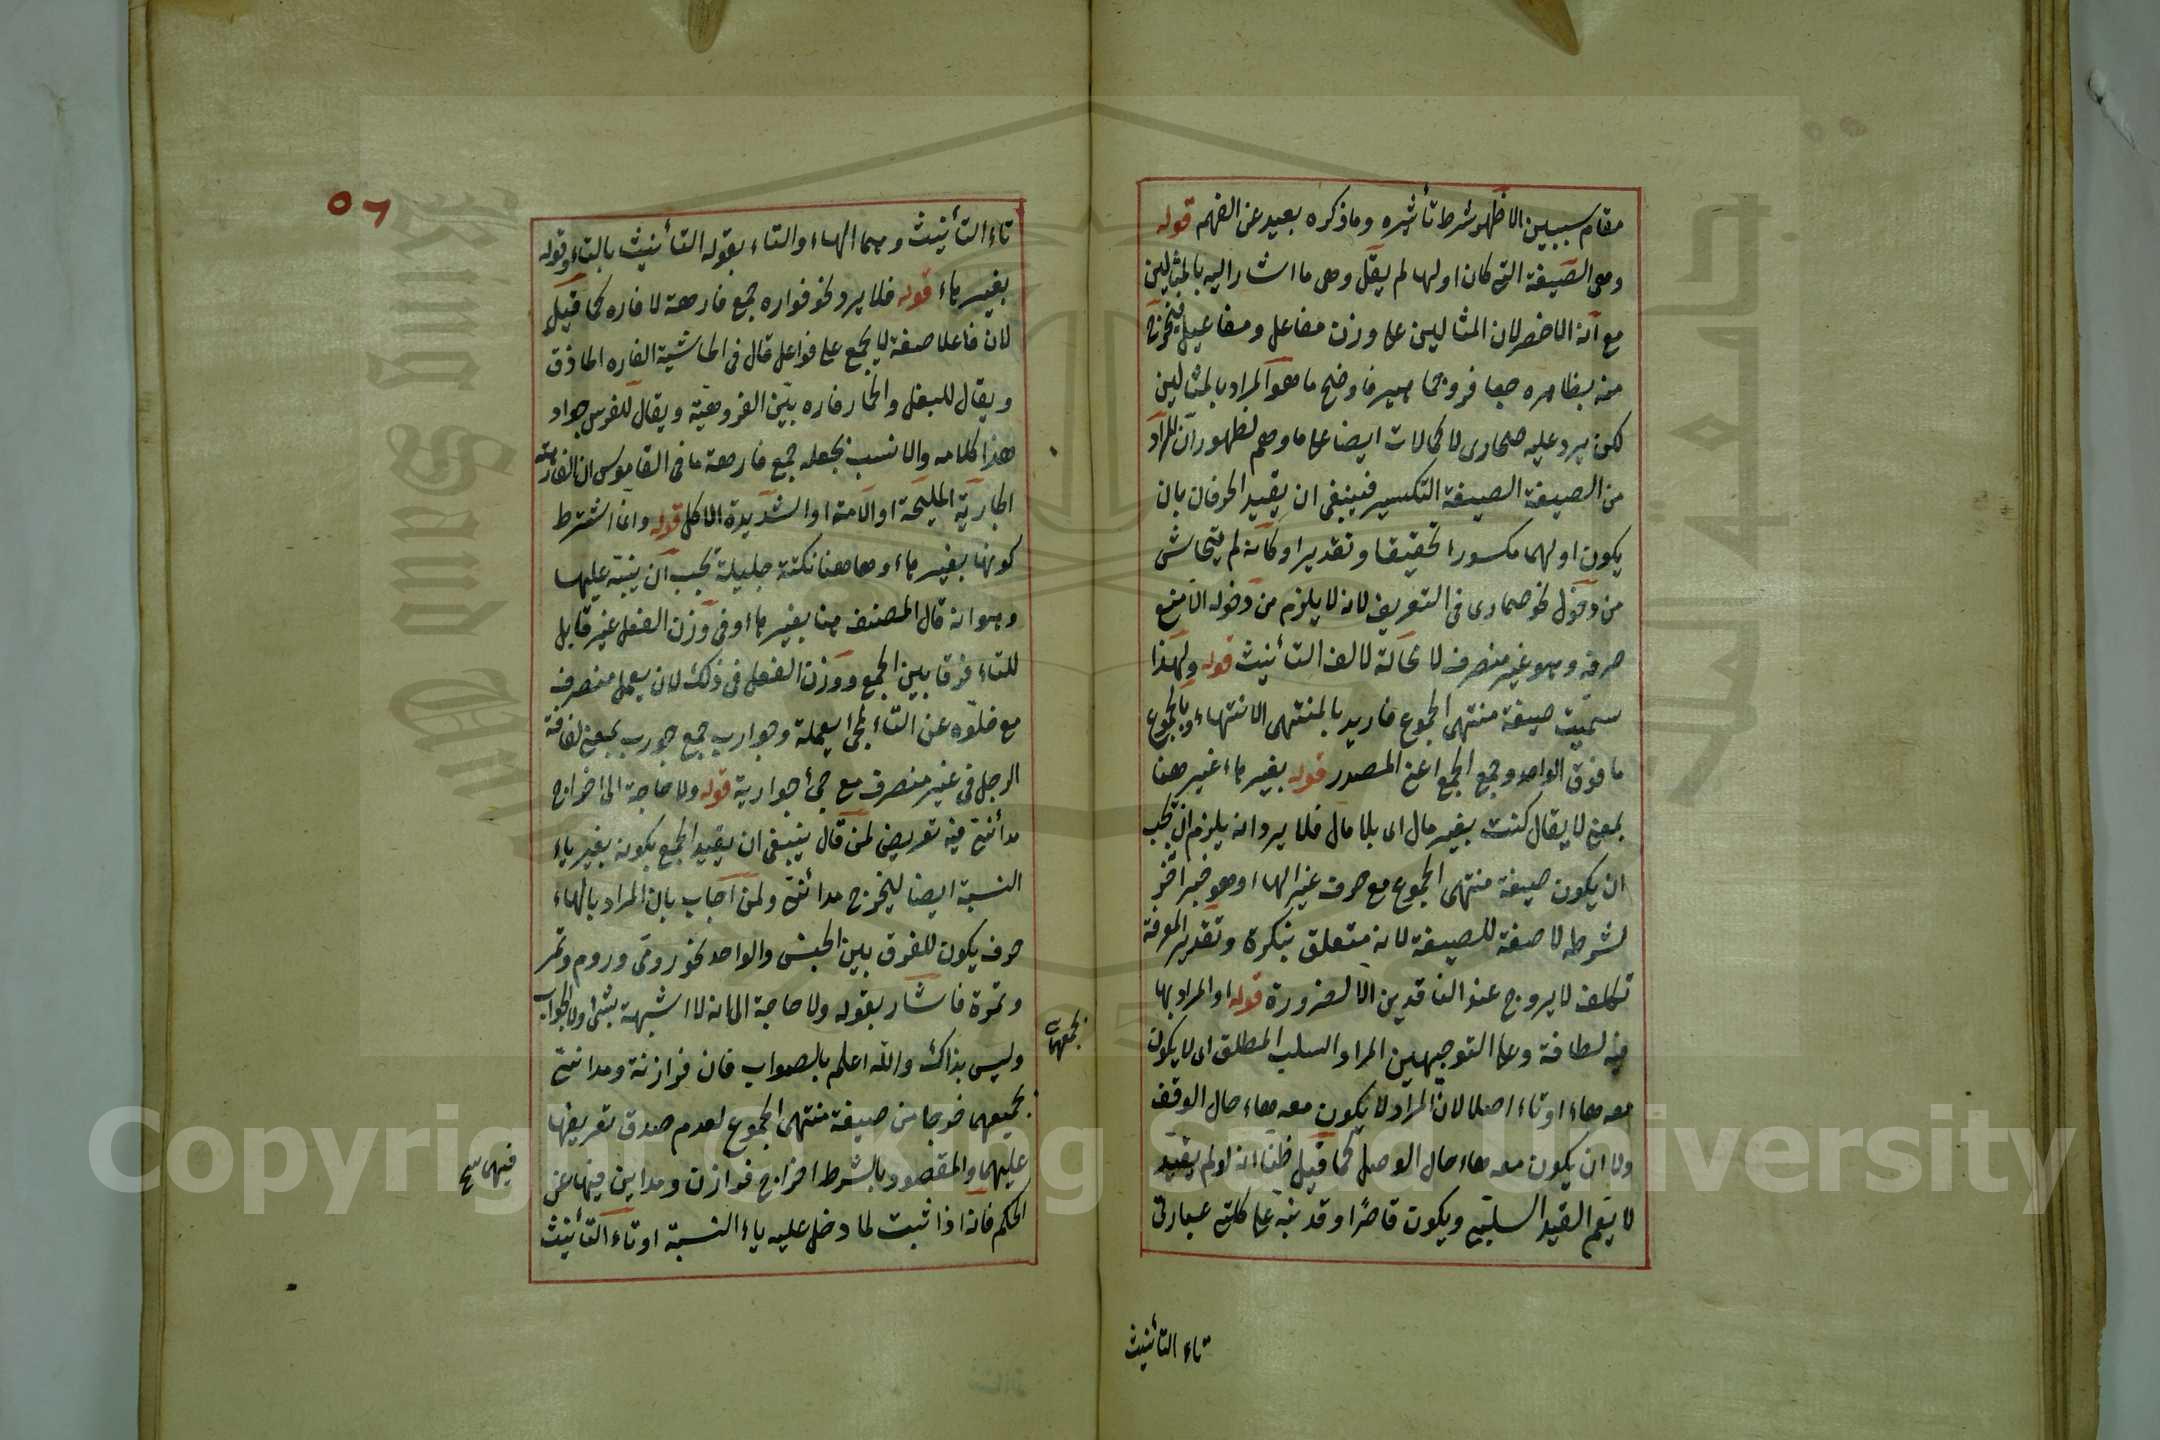 مقام سببين الا ظهر شرط تأثيره وما ذكره بعيد عن الفهم قوله
وهى الصيغة التى كان اولها لم يقل وهى ما اشار اليه بالمثالين
مع انه الاخصر لان المثالين على وزن مفاعل ومفاعيل فيخرج
منه بظاهره جعافر وجماهير فاوضح ما هو المراد بالمثالين
لكن يرد عليه صحارى لا كمالات ايضا على ما وهم لظهور ان المراد
من الصيغة الصيغة التكسير فينبغى ان يقيد الحرفان بان
يكون اولهما مكسورا تحقيقا وتقديرا وكأنه لم يتحاش
من دخول نحو صحارى فى التعريف لانه لا يلزم من دخوله الا منع
صرفه وهو غير منصرف لا محالة لالف التأنيث قوله ولهذا
سميت صيغة منتهى الجموع فاريد بالمنتهى الانتهاء وبالجموع
ما فوق الواحد وجمع الجمع اعنى المصدر قوله بغير هاء غير هنا
بمعنى لا يقال كنت بغير مال اى بلا مال فلا يرد انه يلزم ان يجب
ان يكون صيغة منتهى الجموع مع حرف غير الهاء وهو خبر آخر
لشرطه لا صفة للصيغة لانه متعلق بنكرة وتقدير المعرفة
تكلف لا يروج عند الناقدين الا لضرورة قوله او المراد بها
فيه لطافة وعلى التوجيهين المراد السلب المطلق اى لا يكون
معه هاء او تاء اصلا لان المراد لا يكون معه هاء حال الوقف
ولا ان يكون معه هاء حال الوصل كما قيل ظنا انه لو لم يقيد
لا يتم القيد السلبى ويكون قاصرا وقد نبه على كلتى عبارتى
تاء التأنيث
٥٦
تاء التأنيث وهما الهاء والتاء بقوله التأنيث بالتاء وقوله
بغير هاء قوله فلا يرد نحو فواره جمع فارهة لا فاره كما قيل
لان فاعلا صفة لا يجمع على فواعل قال فى الحاشية الفاره الحاذق
ويقال للبغل والحمار فاره بين الفروهية ويقال للفرس جواد
هذا كلامه والانسب بجعله جمع فارهة ما فى القاموس ان الفارهة
الجارية المليحة او الامة او الشديدة الاكل قوله وانما اشترط
كونها بغير هاء وهاهنا نكتة جليلة يجب ان ينبه عليها
وهو انه قال المصنف هنا بغير هاء وفى وزن الفعل غير قابل
للتاء فرقا بين الجمع ووزن الفعل فى ذلك لان يعمل منصرف
مع خلوه عن التاء لمجئ يعملة وجوارب جمع جورب بمعنى لفافة
الرجل فى غير منصرف مع مجئ جواربة قوله ولا حاجة الى اخراج
مدائنى فيه تعريض لمن قال ينبغى ان يقيد الجمع بكونه بغير ياء
النسبة ايضا ليخرج مدائنى ولمن اجاب بان المراد بالهاء
حرف يكون للفرق بين الجنس والواحد نحو رومى وروم وتمر
وتمرة فاشار بقوله ولا حاجة الى انه لا اشبهة بشئ ولا الجواب
وليس بذاك والله اعلم بالصواب فان فرازنة ومدائنى
بجميعهما خرجا من صيغة منتهى الجموع لعدم صدق تعريفها
عليهما والمقصود بالشرط اخراج فرازن ومداين فيهما عن
الحكم فانه اذا ثبت لما دخل عليه ياء النسبة او تاء التأنيث
بجمعهما
فيهما صح
Copyright © King Saud University